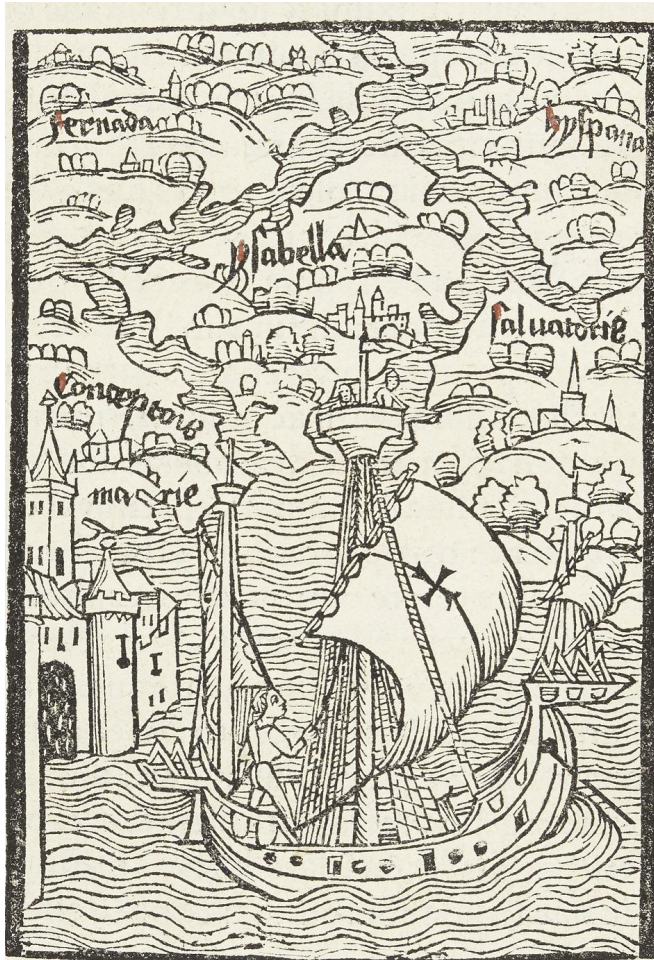 Fernada
hyspana
ysabella
saluatorie
Conceptois
marie